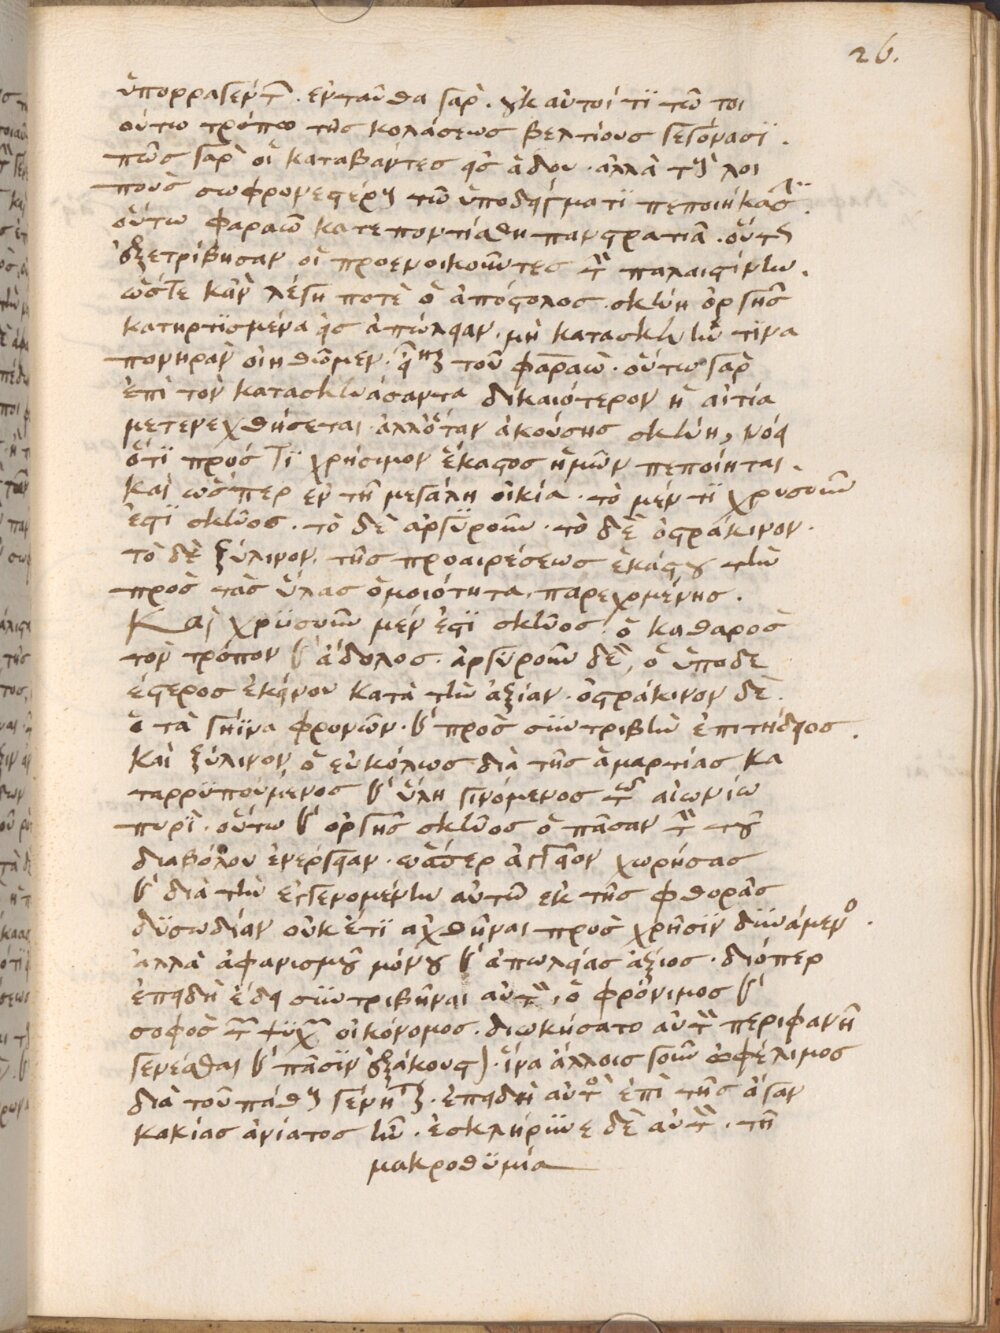 26.
ὑπορραγέντ(ων). ἐνταῦθα γὰρ. οὐκ αὐτοί τϊ τῶ τοι
ούτω τρόπω τῆς κολάσεως βελτίους γεγόνασϊ.
πῶς γὰρ οἱ καταβάντες εἰς ἅδου. ἀλλὰ τοὺς λοι
ποὺς σωφρονεστέρους τῶ ὑποδείγματϊ πεποιήκασϊ.
οὕτω φαραὼ κατεποντίσθη πανστρατιᾶ. οὕτως
ἐξετρίβησαν οἱ προενοικοῦντες τὴν παλαιστίνην.
ὥστε κἂν λέγη ποτὲ ὁ ἀπόστολος. σκεύη ὀργῆς
κατηρτϊσμένα εἰς ἀπώλειαν. μὴ κατασκευήν τινα
πονηρὰν οἰηθῶμεν. εἶναι τοῦ φαραὼ. οὕτω γὰρ
ἐπὶ τὸν κατασκευάσαντα δικαιότερον ἡ αἰτία
μετενεχθήσεται. ἀλλ' ὅταν ἀκούσης σκεύη, νόει
ὅτϊ πρός τϊ χρήσιμον ἕκαστος ἡμῶν πεποίηται.
καὶ ὥσπερ ἐν τῆ μεγάλη οἰκία. τὸ μέν τϊ χρυσοῦν
ἐστϊ σκεῦος. τὸ δὲ ἀργϋροῦν. τὸ δὲ ὀστράκινον.
τὸ δὲ ξύλινον. τῆς προαιρέσεως ἑκάστου τὴν
πρὸς τὰς ὕλας ὁμοιότητα, παρεχομένης.
Καὶ χρϋσοῦν μέν ἐστϊ σκεῦος. ὁ καθαρὸς
τὸν τρόπον καὶ ἄδολος. ἀργϋροῦν δὲ, ὁ ὑποδε
έστερος ἐκείνου κατὰ τὴν ἀξίαν. ὀστράκινον δὲ.
ὁ τὰ γήϊνα φρονῶν. καὶ πρὸς σϋντριβὴν ἐπιτήδειος.
καὶ ξύλινον ὁ εὐκόλως διὰ τῆς ἁμαρτίας κα
ταρρϋπούμενος καὶ ὕλη γινόμενος τῶ αἰωνίω
πυρὶ. οὕτω καὶ ὀργῆς σκεῦος ὁ πᾶσαν τὴν τοῦ
διαβόλου ἐνέργειαν. ὥσπερ ἀγγεῖον χωρήσας
καὶ διὰ τὴν ἐγγενομένην αὐτῶ ἐκ τῆς φθορᾶς
δϋσωδίαν οὐκέτϊ ἀχθῆναι πρὸς χρῆσϊν δϋνάμενος.
ἀλλὰ ἀφανισμοῦ μόνου καὶ ἀπωλείας ἄξιος. διόπερ
ἐπειδὴ ἔδει σϋντριβῆναι αὐτὸν, ὁ φρόνιμος καὶ
σοφὸς τῶν ψϋχῶν οἰκόνομος. διωκήσατο αὐτὸν περιφανῆ
γενέσθαι καὶ πᾶσϊν ἐξάκουστον. ἵνα ἄλλοις γοῦν ὠφέλιμος
διὰ τοῦ πάθους γένηται. ἐπειδὴ αὐτὸς ἐπὶ τῆς ἄγαν
κακίας ἀνίατος ἦν. ἐσκλήρϋνε δὲ αὐτὸν. τῆ
μακροθϋμία